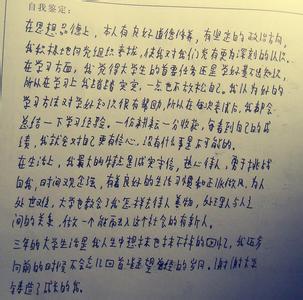 自我鉴定:
在思想品德上，本人有良好道德修养，有坚定的政治方向，
我积极地向党组织靠拢，使我对我们党有更为深刻的认识。
在学习方面，我觉得大学生的首要任务还是学好基本知识，
所以在学习上我踏踏实实，一点也不放松自己。我认为好的
学习方法对学好知识很有帮助，所以在每次考试后，我都会
总结一下学习经验。一份耕耘一分收获，每看到自己的成
绩，我就会对自己更有信心，没有什么事是不可能的。
在生活上，我最大的特点是诚实守信，热心待人，勇于挑战
自我，时间观念强，有着良好的生活习惯和正派作风，为人
外世
大学也教会了我怎样去待人善物，处理人与人之
间的关系，做一个能融入这个社会的有新人。
三年的大学生活是我人生中想抹也抹不掉的回忆，我
向前的时候不会忘记回首
的岁月。谢谢大学
成长的我。